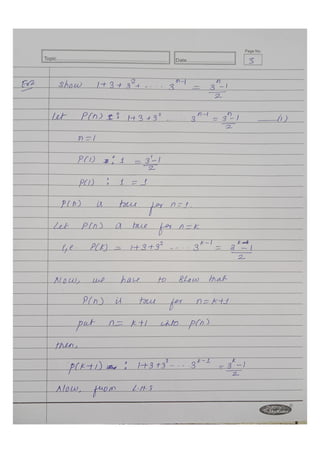 Topic
Date
Page No.
3
Ex2 Show 1+3+3²+ .... 3^(n-1) = (3^n-1)/2
let P(n) : 1+3+3² .... 3^(n-1) = (3^n-1)/2 —(1)
n=1
P(1) : 1 = (3¹-1)/2
P(1) : 1 = 1
P(n) is true for n=1.
Let P(n) is true for n=k
i,e P(k) = 1+3+3² .... 3^(k-1) = (3^k-1)/2
Now, we have to show that
P(n) is true for n=k+1
put n= k+1 into p(n)
then,
P(k+1) : 1+3+3² --- 3^(k-1) = (3^k-1)/2
Now, from L.H.S